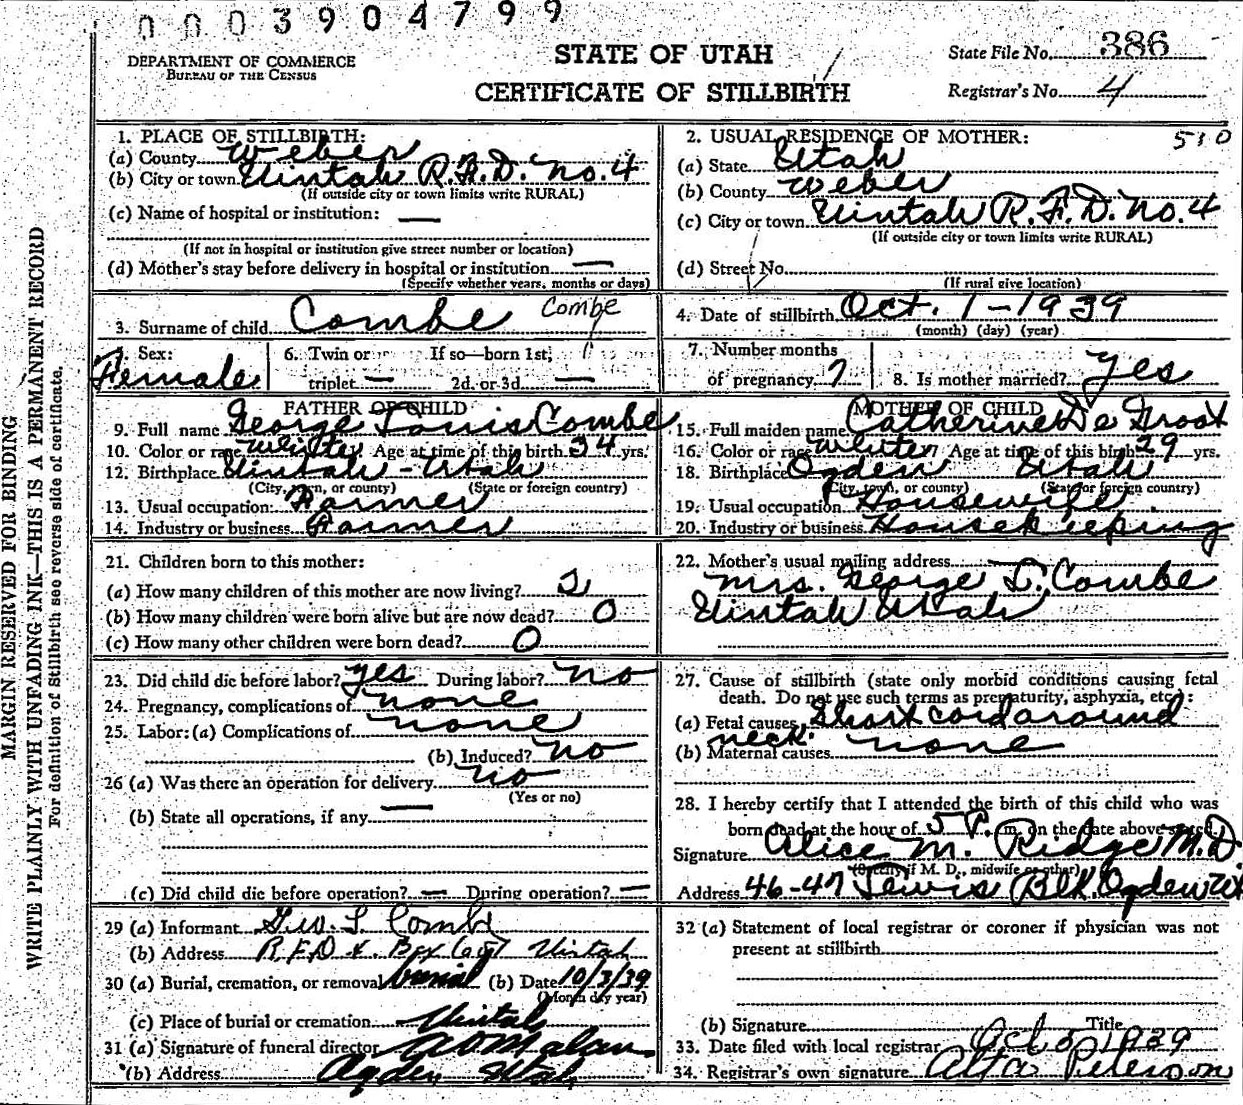 0003904799
DEPARTMENT OF COMMERCE
BUREAU OF THE CENSUS
STATE OF UTAH
CERTIFICATE OF STILLBIRTH
State File No. 386
Registrar's No. 4
MARGIN RESERVED FOR BINDING
WRITE PLAINLY WITH UNFADING INK—THIS IS A PERMANENT RECORD
For definition of Stillbirth see reverse side of certificate.
1. PLACE OF STILLBIRTH:
(a) County Weber
(b) City or town Uintah R.F.D. No. 4
(If outside city or town limits write RURAL)
(c) Name of hospital or institution: —
(If not in hospital or institution give street number or location)
(d) Mother's stay before delivery in hospital or institution —
(Specify whether years, months or days)
2. USUAL RESIDENCE OF MOTHER: 510
(a) State Utah
(b) County Weber
(c) City or town Uintah R.F.D. No. 4
(If outside city or town limits write RURAL)
(d) Street No.
(If rural give location)
3. Surname of child Combe Combe
4. Date of stillbirth Oct. 1-1939
(month) (day) (year)
5. Sex: Female
6. Twin or triplet — If so—born 1st; 2d. or 3d —
7. Number months of pregnancy 7
8. Is mother married? yes
FATHER OF CHILD
9. Full name George Louis Combe
10. Color or race White Age at time of this birth 34 yrs.
12. Birthplace Uintah - Utah
(City, town, or county) (State or foreign country)
13. Usual occupation: Farmer
14. Industry or business Farmer
MOTHER OF CHILD
15. Full maiden name Catherine De Groot
16. Color or race White Age at time of this birth 29 yrs.
18. Birthplace Ogden Utah
(City, town, or county) (State or foreign country)
19. Usual occupation Housewife
20. Industry or business Housekeeping
21. Children born to this mother:
(a) How many children of this mother are now living? 2
(b) How many children were born alive but are now dead? 0
(c) How many other children were born dead? 0
22. Mother's usual mailing address
Mrs. George L. Combe
Uintah Utah
23. Did child die before labor? yes During labor? no
24. Pregnancy, complications of none
25. Labor: (a) Complications of none
(b) Induced? no
26 (a) Was there an operation for delivery no
(Yes or no)
(b) State all operations, if any —
(c) Did child die before operation? — During operation? —
27. Cause of stillbirth (state only morbid conditions causing fetal
death. Do not use such terms as prematurity, asphyxia, etc.):
(a) Fetal causes Short cord around
neck.
(b) Maternal causes none
28. I hereby certify that I attended the birth of this child who was
born dead at the hour of 5 P. m. on the date above stated.
Signature Alice M. Ridge M.D.
(Specify if M. D., midwife or other)
Address 46-47 Lewis Blk Ogden Ut
29 (a) Informant Geo. L Combe
(b) Address R.F.D 4. Box Uintah
30 (a) Burial, cremation, or removal burial (b) Date 10/3/39
(Month day year)
(c) Place of burial or cremation Uintah
31 (a) Signature of funeral director A O Malan
(b) Address Ogden Utah
32 (a) Statement of local registrar or coroner if physician was not
present at stillbirth
(b) Signature Title
33. Date filed with local registrar Oct 5 1939
34. Registrar's own signature Alta Peterson